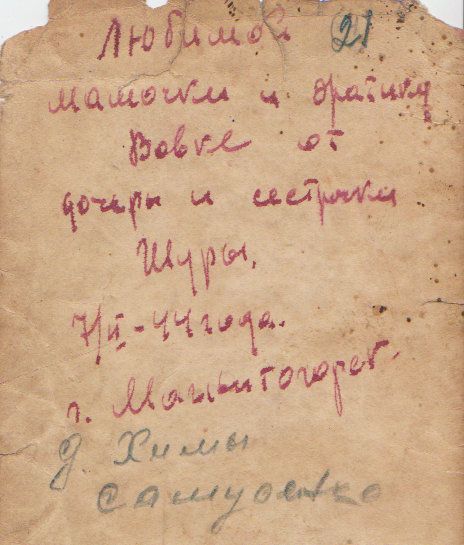 Любимой 21
мамочки и братику
Вовке от
дочеры и сестрички
Шуры.
7/II-44 года.
г. Магнитогорск.
д. Химы